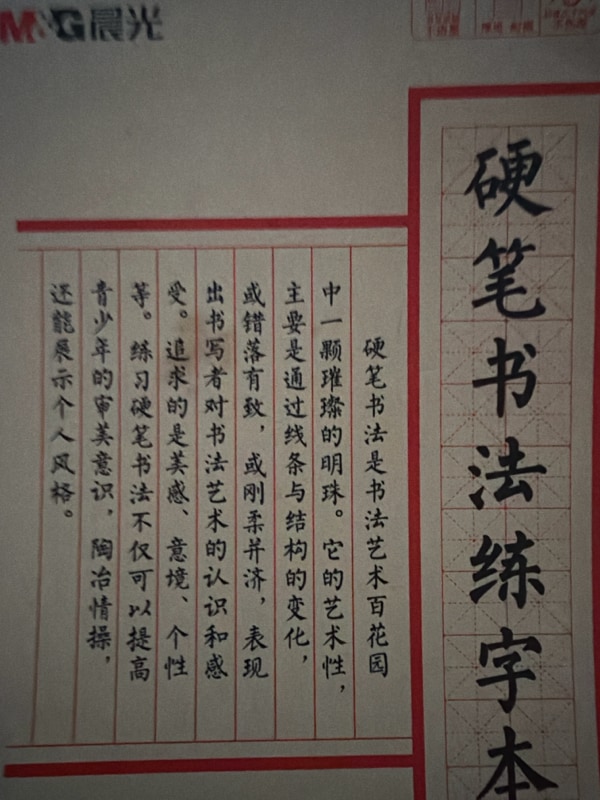 M&G晨光
硬笔书法练字本
硬笔书法是书法艺术百花园
中一颗璀璨的明珠。它的艺术性，
主要是通过线条与结构的变化，
或错落有致，或刚柔并济，表现
出书写者对书法艺术的认识和感
受。追求的是美感、意境、个性
等。练习硬笔书法不仅可以提高
青少年的审美意识，陶冶情操，
还能展示个人风格。